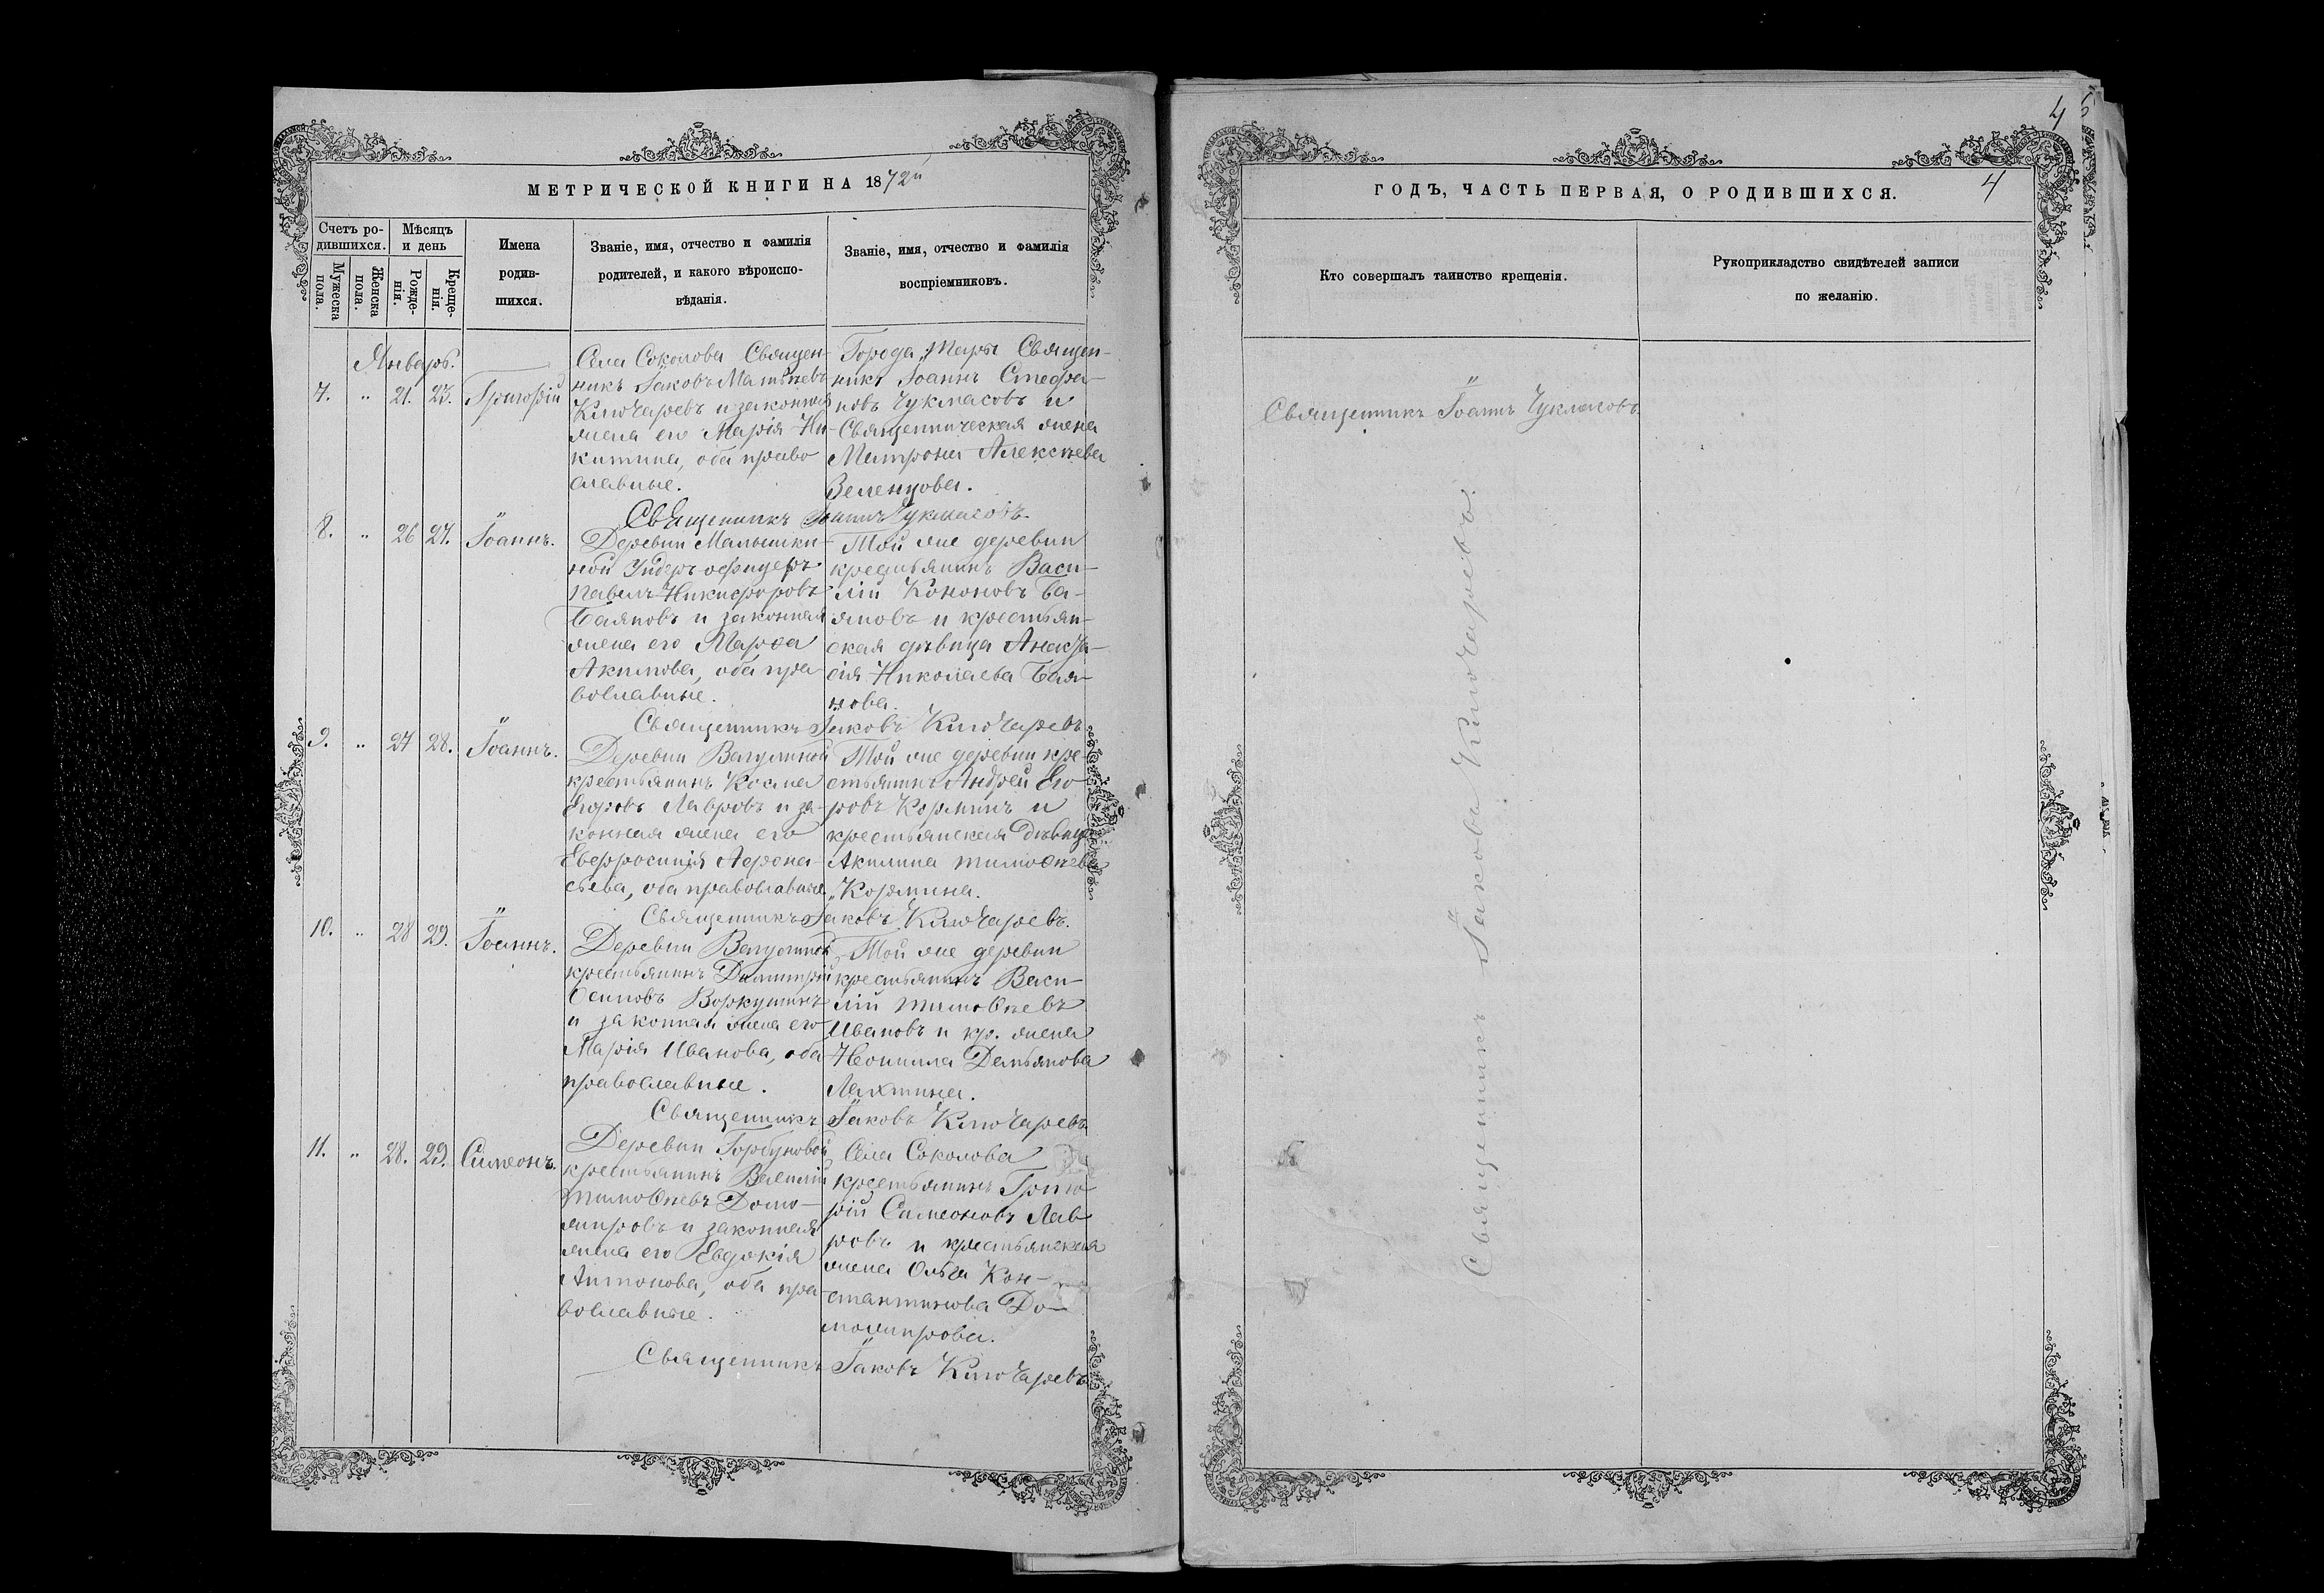 МЕТРИЧЕСКОЙ КНИГИ НА 1872й
Счетъ ро-
дившихся.
Мужеска
пола.
Женска
пола.
Мѣсяцъ
и день
Рожде-
нія.
Креще-
нія.
Имена
родив-
шихся.
Званіе, имя, отчество и фамилія
родителей, и какого вѣроиспо-
вѣданія.
Званіе, имя, отчество и фамилія
воспріемниковъ.
Январь.
7. " 21. 23. Григорій
Села Соколова Священ-
никъ Іаковъ Матѳѣевъ
Ключаревъ и законная
жена его Марія Ни-
китина, оба право
славные.
Города Тары Священ-
никъ Іоаннъ Стефа-
новъ Чукмасовъ и
Священническая жена
Матрона Алексѣева
Зеленцова.
Священникъ Іоаннъ Чукмасовъ.
8. " 26 27. Іоаннъ.
Деревни Малышки-
ной Унтеръ офицеръ
Павелъ Никифоровъ
Баяновъ и законная
жена его Марѳа
Акимова, оба пра-
вославные.
Той же деревни
крестьянинъ Васи-
лій Кононовъ Ба-
яновъ и крестьян-
ская дѣвица Анаста-
сія Николаева Бая-
нова.
Священникъ Іаковъ Ключаревъ
9. " 27 28. Іоаннъ.
Деревни Вагулиной
крестьянинъ Косма
Егоровъ Лавровъ и за-
конная жена его
Евфросинія Афона-
сьева, оба православные.
Той же деревни кре-
стьянинъ Андрей Его
ровъ Корминъ и
крестьянская дѣвица
Акилина Тимоѳеева
Кормина.
Священникъ Іаковъ Ключаревъ.
10. " 28 29. Іоаннъ.
Деревни Вагулиной
крестьянинъ Димитрій
Осиповъ Воркушинъ
и законная жена его
Марія Иванова, оба
православные.
Той же деревни
крестьянинъ Васи-
лій Тимоѳеевъ
Ивановъ и кр. жена
Неонила Демьянова
Лахтина.
Священникъ Іаковъ Ключаревъ
11. " 28. 29. Симеонъ.
Деревни Горбуновой
крестьянинъ Василій
Тимоѳеевъ Домо-
жировъ и законная
жена его Евдокія
Антонова, оба пра-
вославные.
Села Соколова
крестьянинъ Григо
рій Симеоновъ Лав
ровъ и крестьянская
жена Ольга Кон-
стантинова До-
можирова.
Священникъ Іаковъ Ключаревъ
4 5
ГОДЪ, ЧАСТЬ ПЕРВАЯ, О РОДИВШИХСЯ.
4
Кто совершалъ таинство крещенія.
Рукоприкладство свидѣтелей записи
по желанію.
Священникъ Іоаннъ Чукмасовъ.
Священникъ Іакова Ключаревъ.